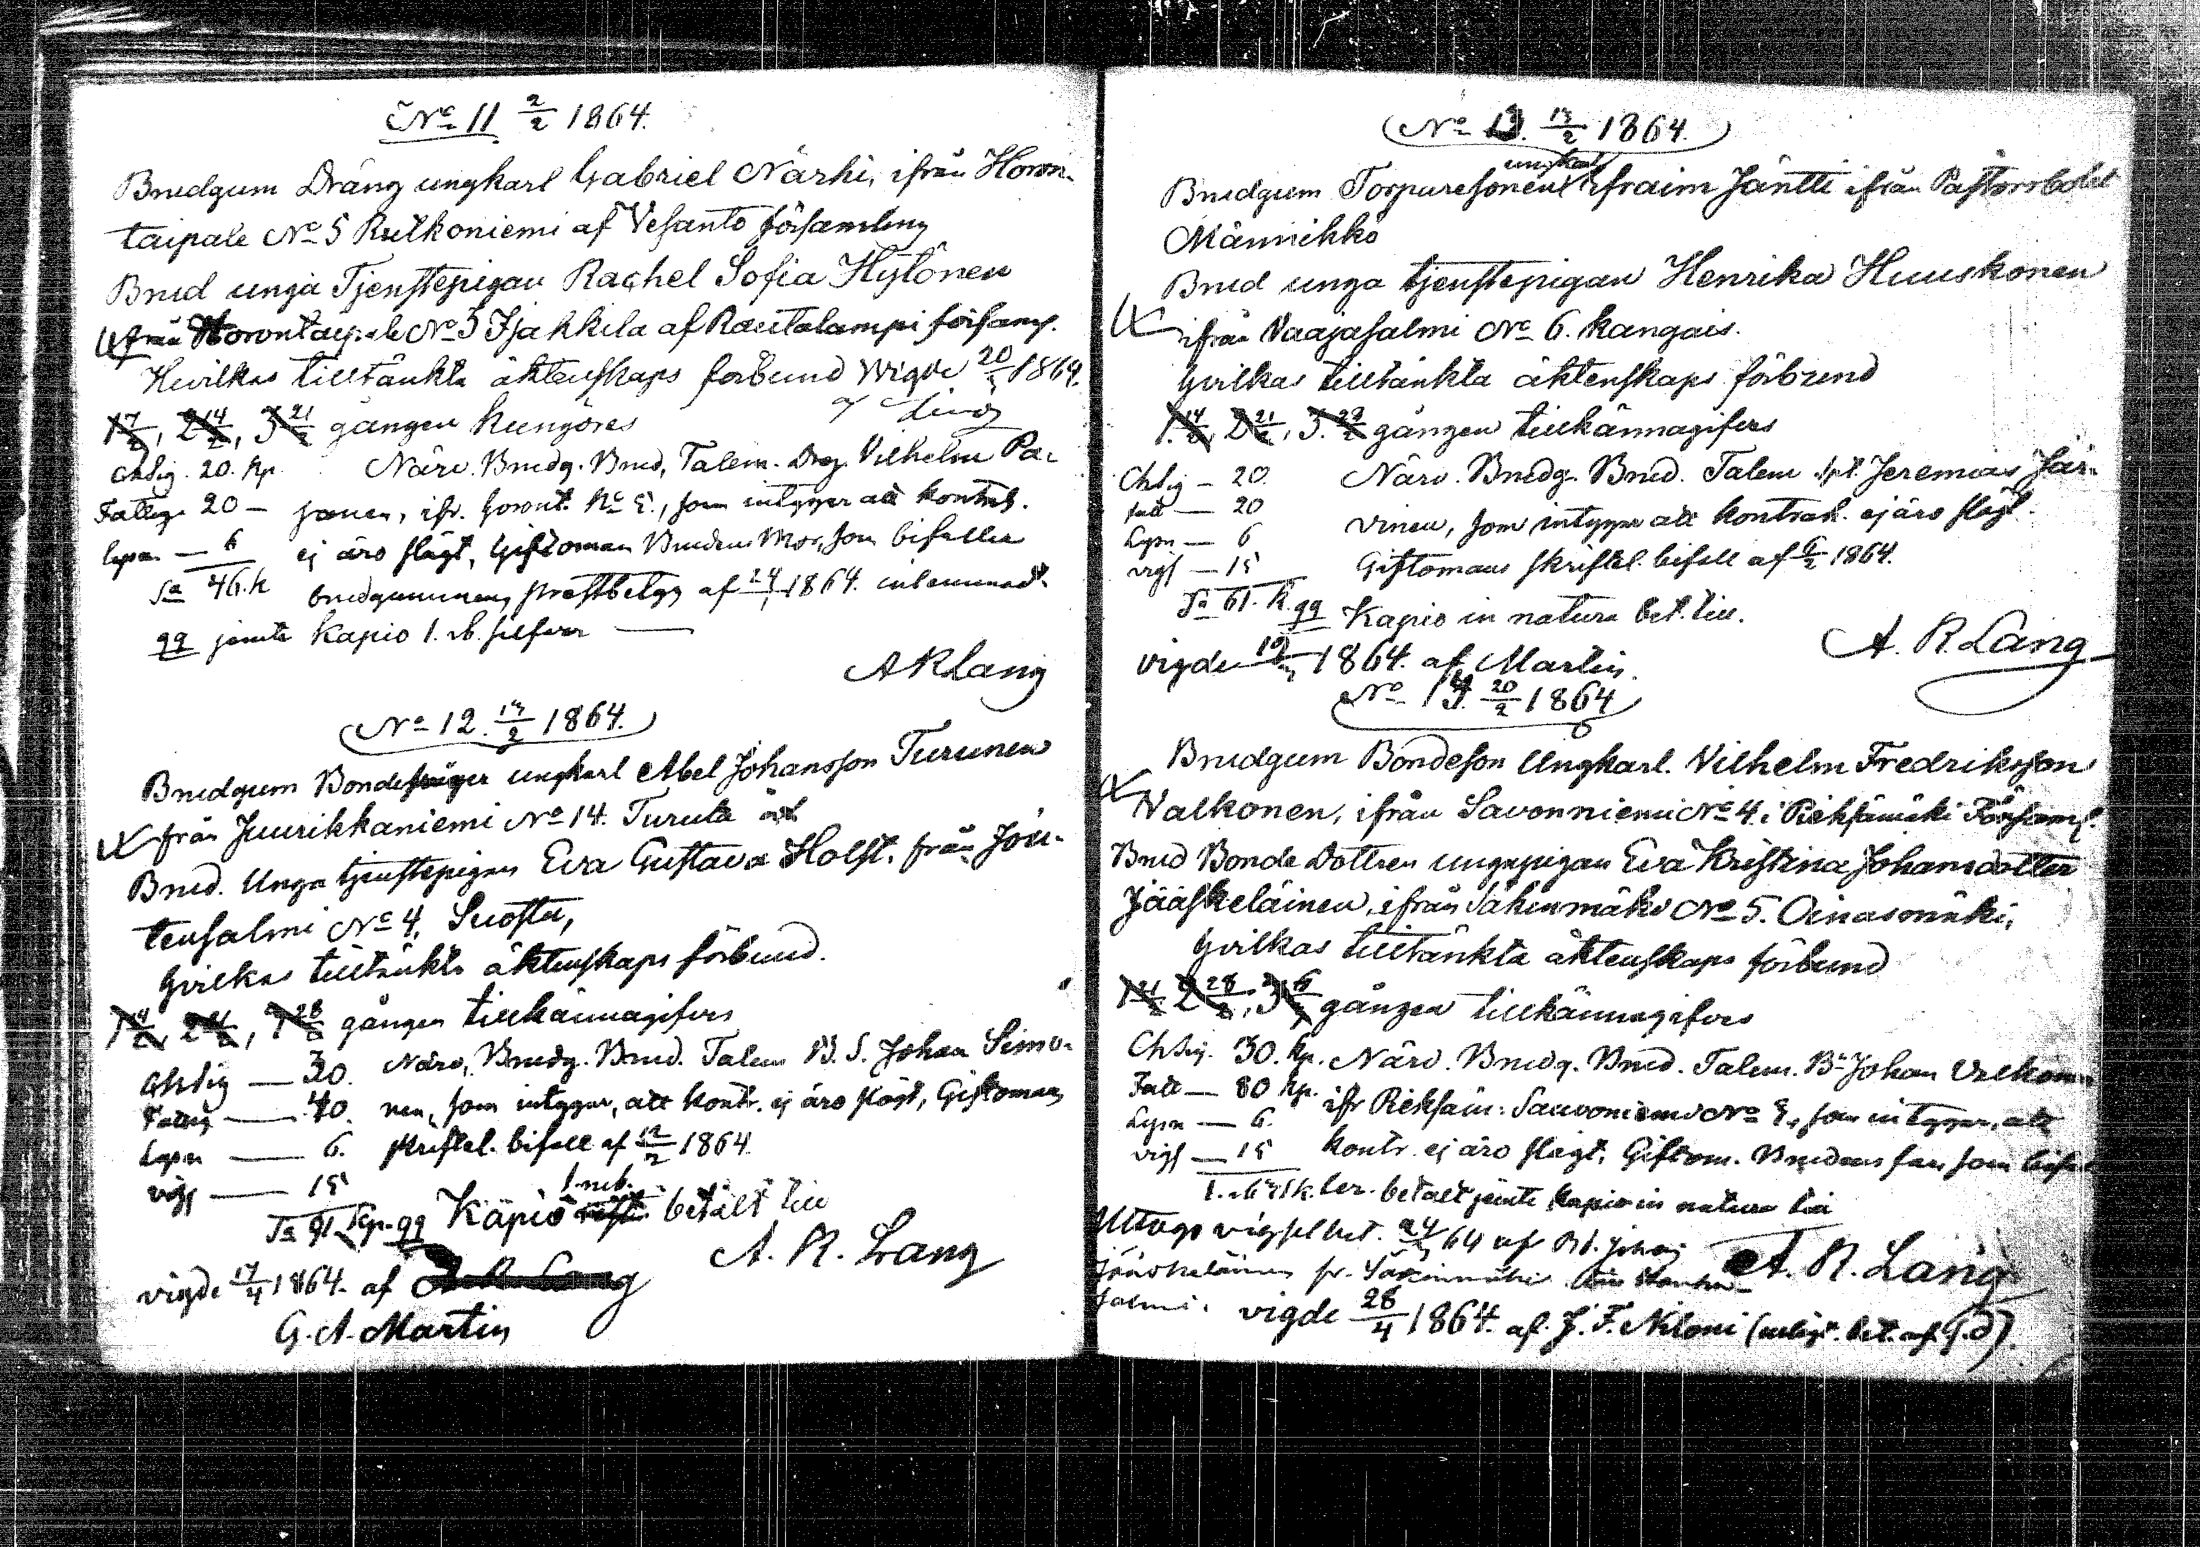 No 11 2/2 1864.
Brudgum Dräng ungkarl Gabriel Närhi, ifrån Horon-
taipale No 5 Rutkoniemi af Vesanto församling
Brud unga Tjenstepigan Rachel Sofia Hytönen
från Horontaipale No 5 Ijahkila af Rautalampi församl.
Hvilkas tilltänkta äktenskaps förbund Wigde 20/ 1864.
1 7/2, 2 14/2, 3 21/2 gången kungöres
Chsig. 20. kp. Närv. Brudg. Brud, Talem. Drg. Vilhelm Pa-
Fattig 20 — janen, ifr. Horont. No 5., som intygar att kontrah.
Lysn — 6 ej äro slägt, Giftoman Brudens Mor, som bifaller
Sa 46. k brudgummens prestbetyg af 24/1 1864. inlemnadt.
qq jemte Kapio 1. rb. silfver —
A R Lang
No 12. 13/2 1864.
Brudgum Bonde ungkarl Abel Johansson Turunen
från Juurikkaniemi No 14. Turula
Brud. Unga tjenstepigan Eva Gustava Holst. från Jou-
tensalmi No 4, Suosta,
Hvilkas tilltänkta äktenskaps förbund.
1 14/2, 2 21/2, 3 28/2 gången tillkännagifves
Chsig — 30. Närv. Brudg. Brud. Talem B. S. Johan Simo-
Fattig — 40. nen, som intygar, att kontr. ej äro slägt, Giftomans
Lysn — 6. skriftel. bifall af 12/2 1864.
vigs — 15 1. rub.
Sa 91 kp. qq Kapio betalt till
A. R. Lang
vigde 17/4 1864. af A. R. Lang
G. A. Martin
No 13. 13/2 1864.
ungkarl
Brudgum Torparesonen Efraim Jäntti ifrån Pastorsbolet
Männikkö
Brud unga tjenstepigan Henrika Huuskonen
ifrån Vaajasalmi No 6. Kangais.
Hvilkas tilltänkta äktenskaps förbund
1. 14/2, 2 21/2, 3. 28/2 gången tillkännagifves
Chsig — 20. Närv. Brudg. Brud. Talem Jeremias Jär-
fatt — 20 vinen, som intygar att kontrah. ej äro slägt.
Lysn — 6 Giftomans skriftel. bifall af 6/2 1864.
vigs — 15
Sa 61. k. qq Kapio in natura bet. till.
A. R. Lang
vigde 1864. af Martin.
No 14. 20/2 1864
Brudgum Bondeson Ungkarl. Vilhelm Fredriksson
Valkonen, ifrån Savonniemi No 4. i Pieksämäki Församl.
Brud Bonde Dottren ungapigan Eva Kristina Johansdotter
Jääskeläinen, ifrån Säkinmäki No 5. Oinasmäki,
Hvilkas tilltänkta äktenskaps förbund
1 21/2, 2 28/2, 3 6/3 gången tillkännagifves
Chsig. 30. kp. Närv. Brudg. Brud. Talem. Bn Johan Valkonen
Fatt — 80 kp. ifr Pieksäm: Savoniemi No 5, som intygar, att
Lysn — 6. kontr. ej äro slägt. Giftom. Brudens far, som
vigs — 15
betalt jemte kapio in natura till
Uttogs vigselbet. 64 af Johan
Jääskeläinen fr. Säkinmäki
A. R. Lang
vigde 28/4 1864. af. J. F. Niloni